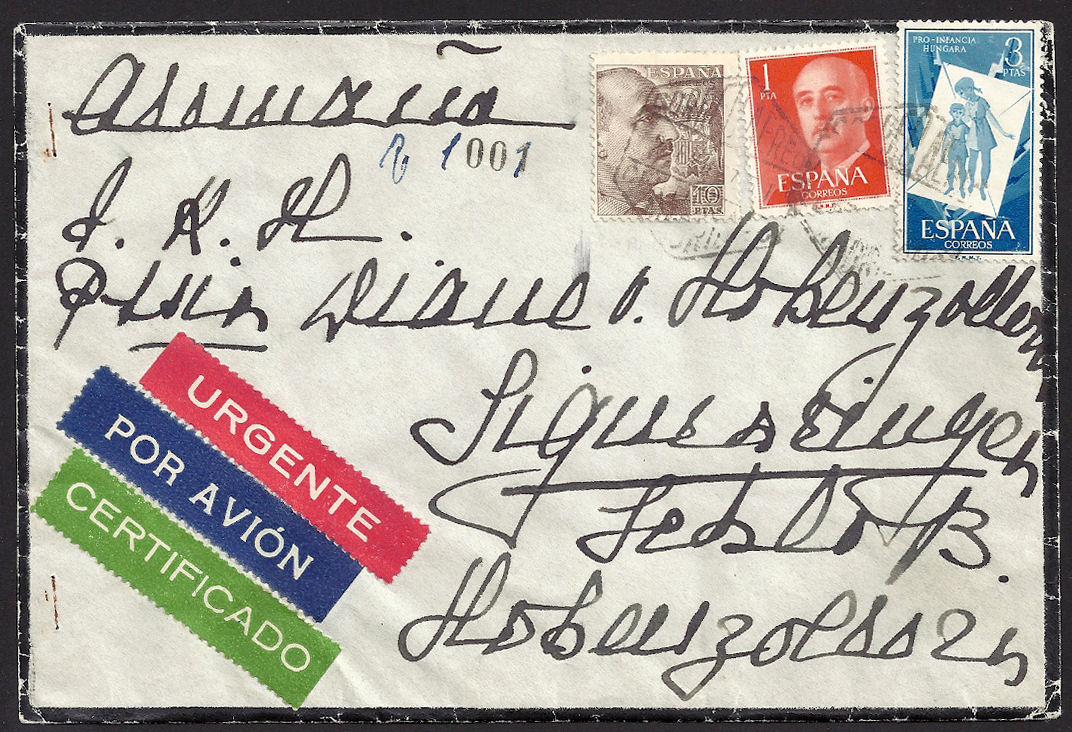 Alemania
1001
S. A. R.
Diane v. Hohenzollern
Sigmaringen
Schloß
Hohenzollern
ESPAÑA
10
PTAS
1
PTA
ESPAÑA
CORREOS
F.N.M.T.
PRO-INFANCIA
HUNGARA
3
PTAS
ESPAÑA
CORREOS
F.N.M.T.
URGENTE
POR AVIÓN
CERTIFICADO